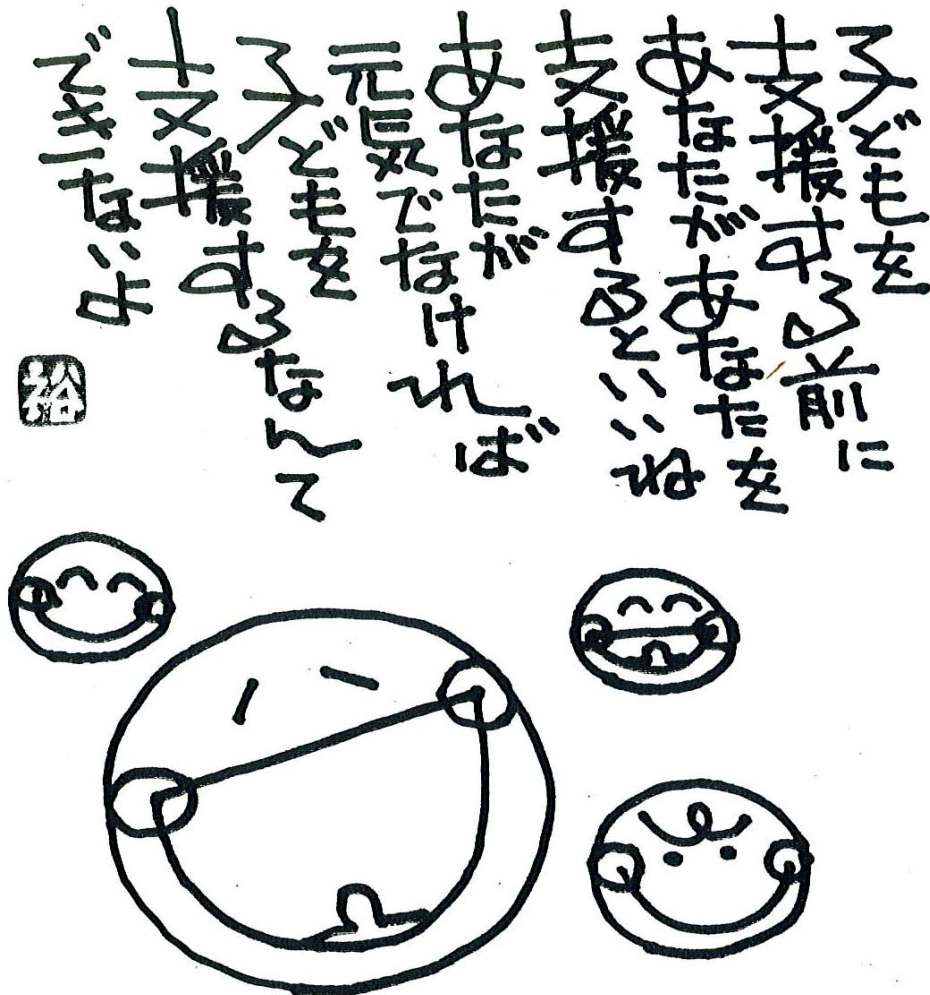 子どもを
支援する前に
あなたがあなたを
支援するといいね
あなたが
元気でなければ
子どもを
支援するなんて
できないよ
裕